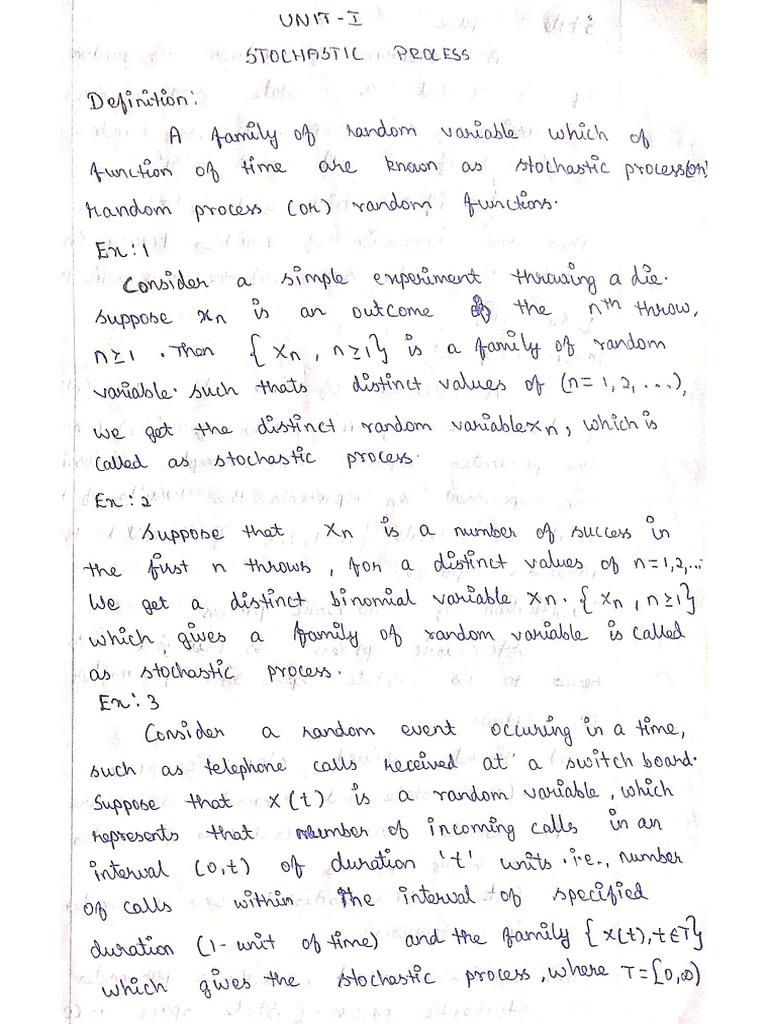 UNIT-I
STOCHASTIC PROCESS
Definition:
A family of random variable which of
function of time are known as stochastic process(or)
random process (or) random functions.
Ex:1
Consider a simple experiment throwing a die.
suppose xn is an outcome of the nth throw,
n≥1. Then {xn, n≥1} is a family of random
variable. such thats distinct values of (n=1,2,...),
we get the distinct random variable xn, which is
called as stochastic process.
Ex:2
Suppose that xn is a number of success in
the first n throws, for a distinct values of n=1,2,...
We get a distinct binomial variable xn. {xn, n≥1}
which gives a family of random variable is called
as stochastic process.
Ex:3
Consider a random event occuring in a time,
such as telephone calls received at a switch board.
Suppose that x(t) is a random variable, which
represents that number of incoming calls in an
interval (0,t) of duration 't' units. i.e., number
of calls within the interval of specified
duration (1-unit of time) and the family {x(t), t∈T}
which gives the stochastic process, where T=[0,∞)